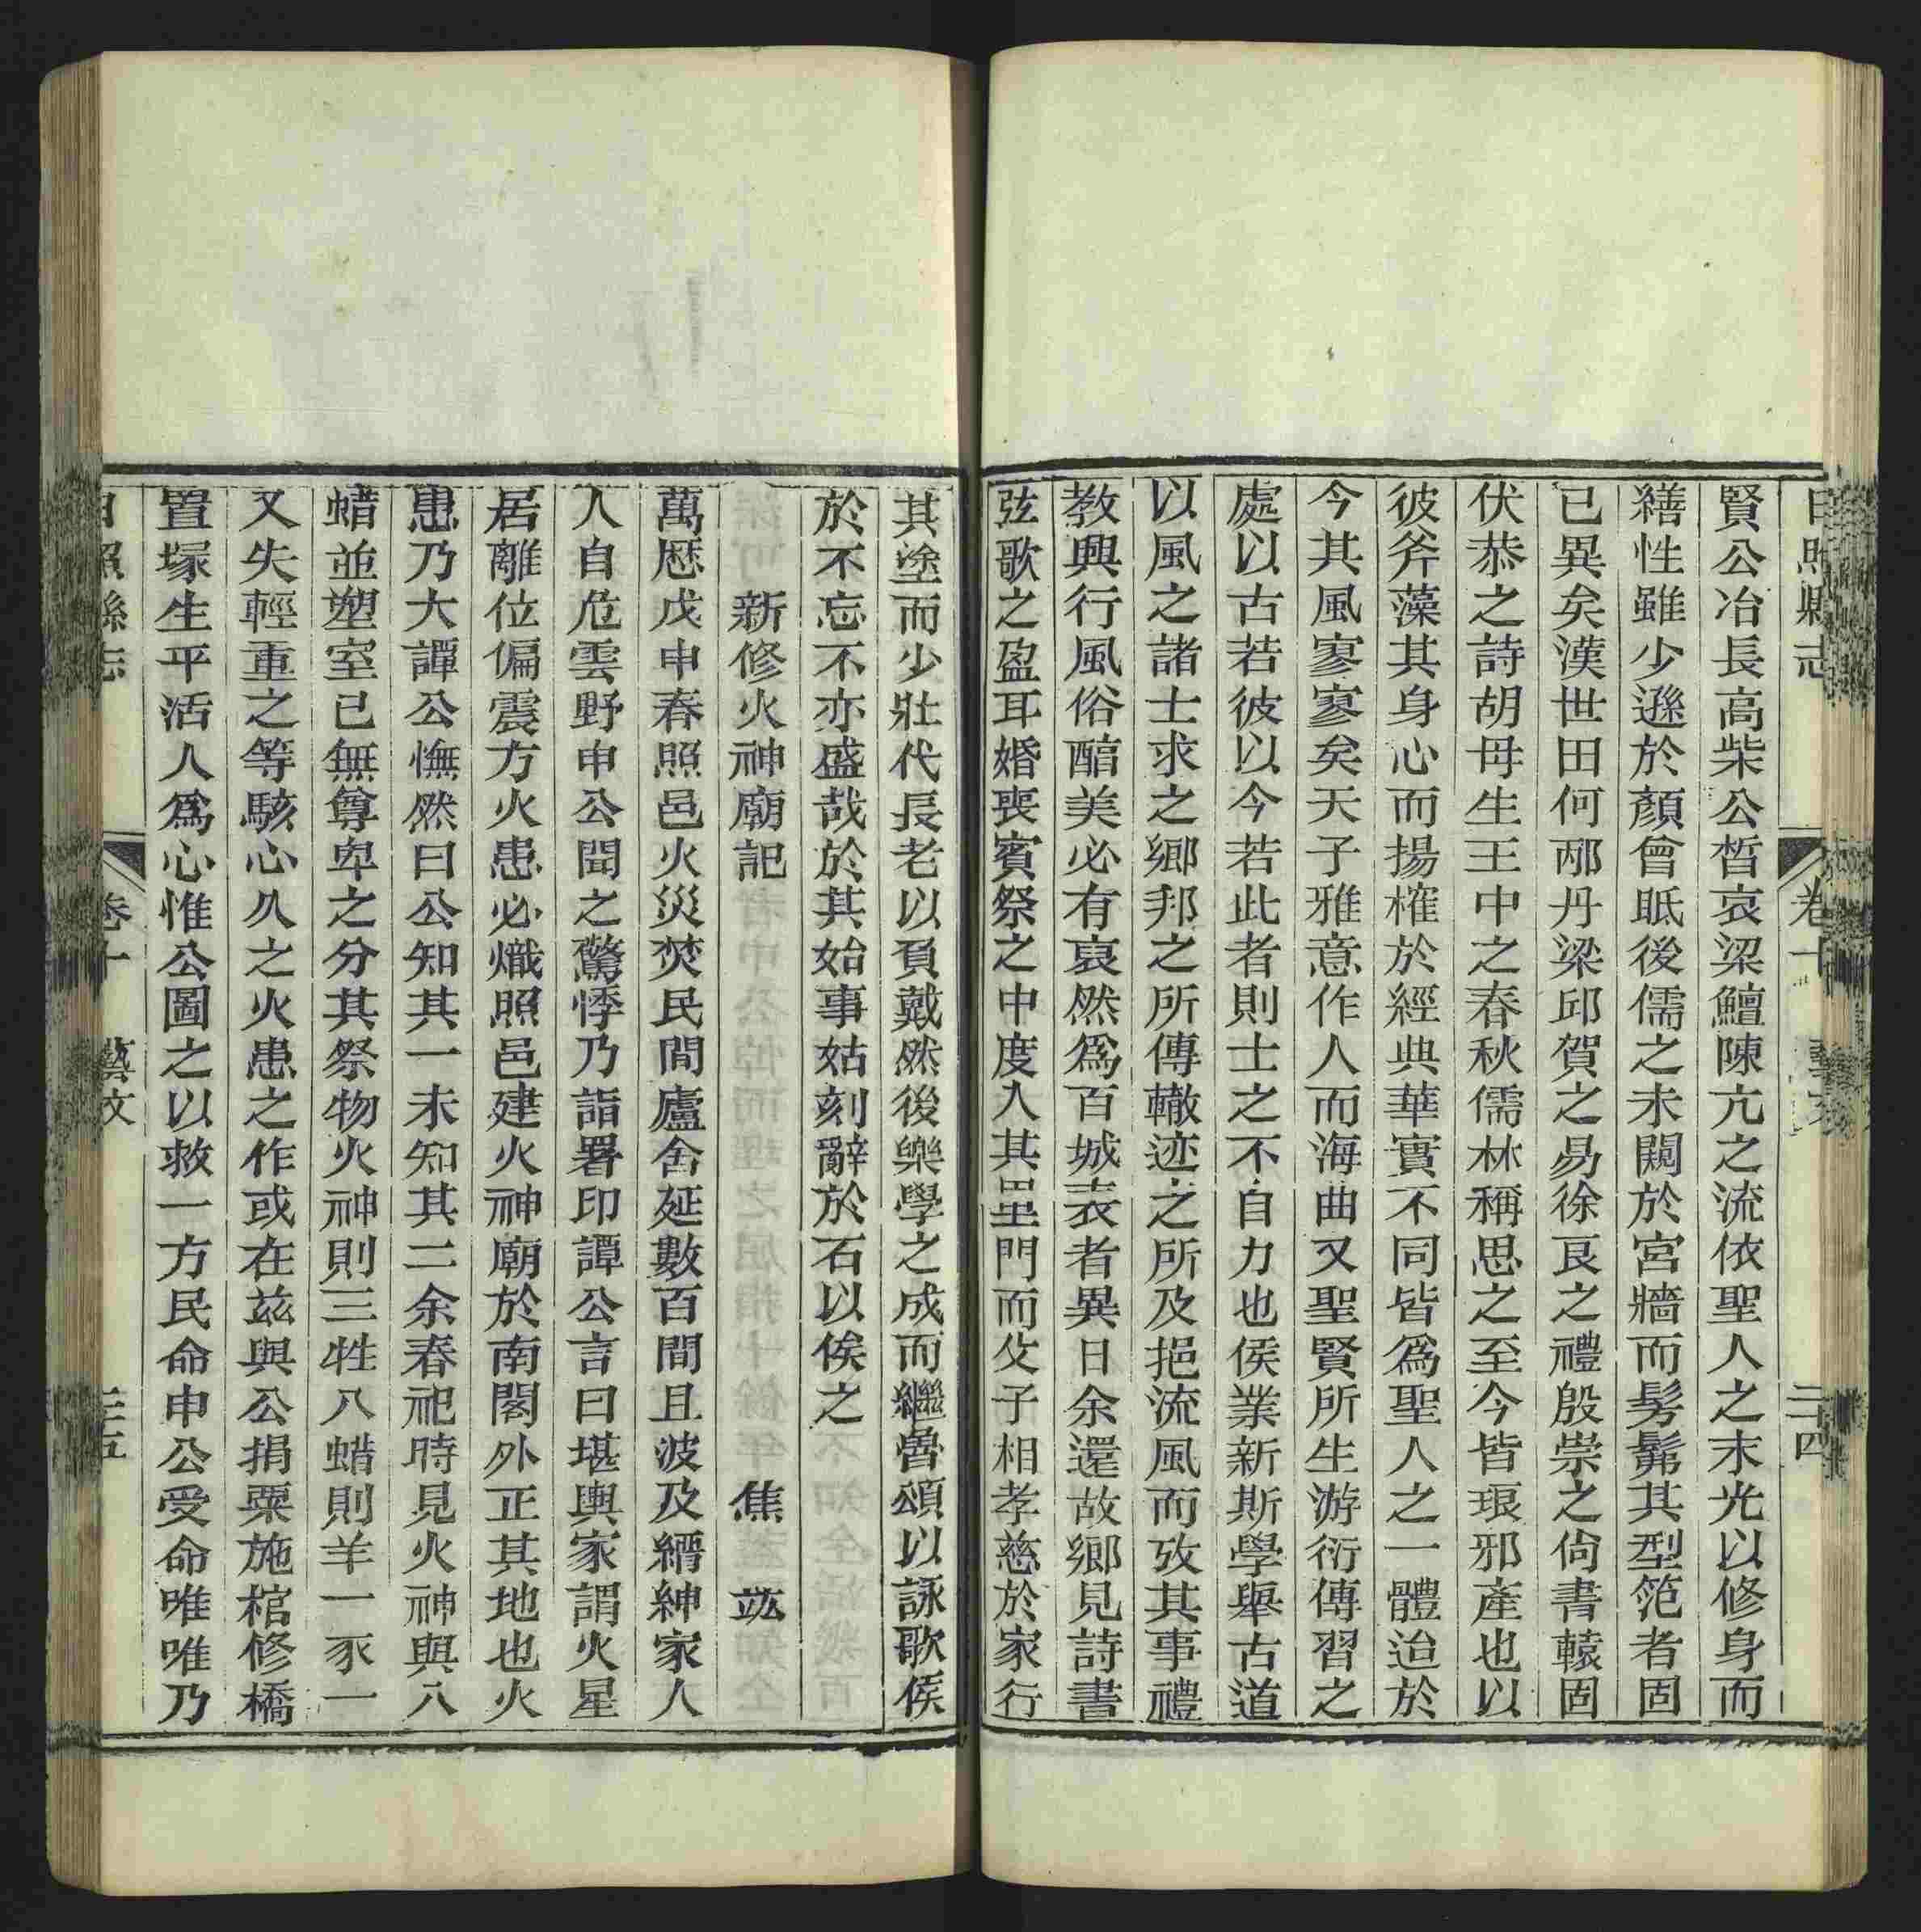 日照縣志 卷十 藝文 二十四
賢公冶長高柴公晳哀梁鱣陳亢之流依聖人之末光以修身而
繕性雖少遜於顏曾眡後儒之未闚於宮牆而髣髴其型笵者固
已異矣漢世田何邴丹梁邱賀之易徐良之禮殷崇之尙書轅固
伏恭之詩胡毋生王中之春秋儒林稱思之至今皆琅邪產也以
彼斧藻其身心而揚榷於經典華實不同皆爲聖人之一體迨於
今其風寥寥矣天子雅意作人而海曲又聖賢所生游衍傳習之
處以古若彼以今若此者則士之不自力也侯業新斯學舉古道
以風之諸士求之鄉邦之所傳轍迹之所及挹流風而攷其事禮
教興行風俗醕美必有裒然爲百城表者異日余還故鄉見詩書
弦歌之盈耳婚喪賓祭之中度入其里門而父子相孝慈於家行
其塗而少壯代長老以負戴然後樂學之成而繼魯頌以詠歌侯
於不忘不亦盛哉於其始事姑刻辭於石以俟之
新修火神廟記 焦竑
萬歷戊申春照邑火災焚民間廬舍延數百間且波及縉紳家人
人自危雲野申公聞之驚悸乃詣署印譚公言曰堪輿家謂火星
居離位偏震方火患必熾照邑建火神廟於南閣外正其地也火
患乃大譚公憮然曰公知其一未知其二余春祀時見火神與八
蜡並塑室已無尊卑之分其祭物火神則三牲八蜡則羊一豕一
又失輕重之等駭心久之火患之作或在兹與公捐粟施棺修橋
置塚生平活人爲心惟公圖之以救一方民命申公受命唯唯乃
日照縣志 卷十 藝文 二十五